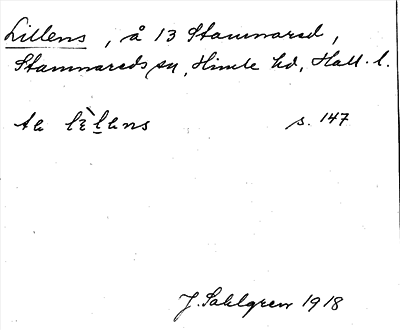 Lillens, å 13 Stamnared,
Stamnareds sn, Himle hd, Hall. l.
s. 147
J. Sahlgren 1918